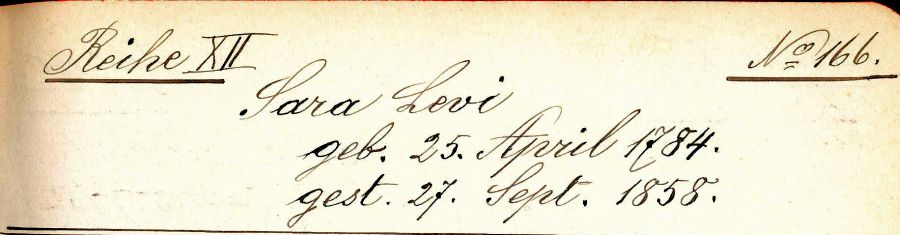 Reihe XII № 166.
Sara Levi
geb. 25. April 1784.
gest. 27. Sept. 1858.